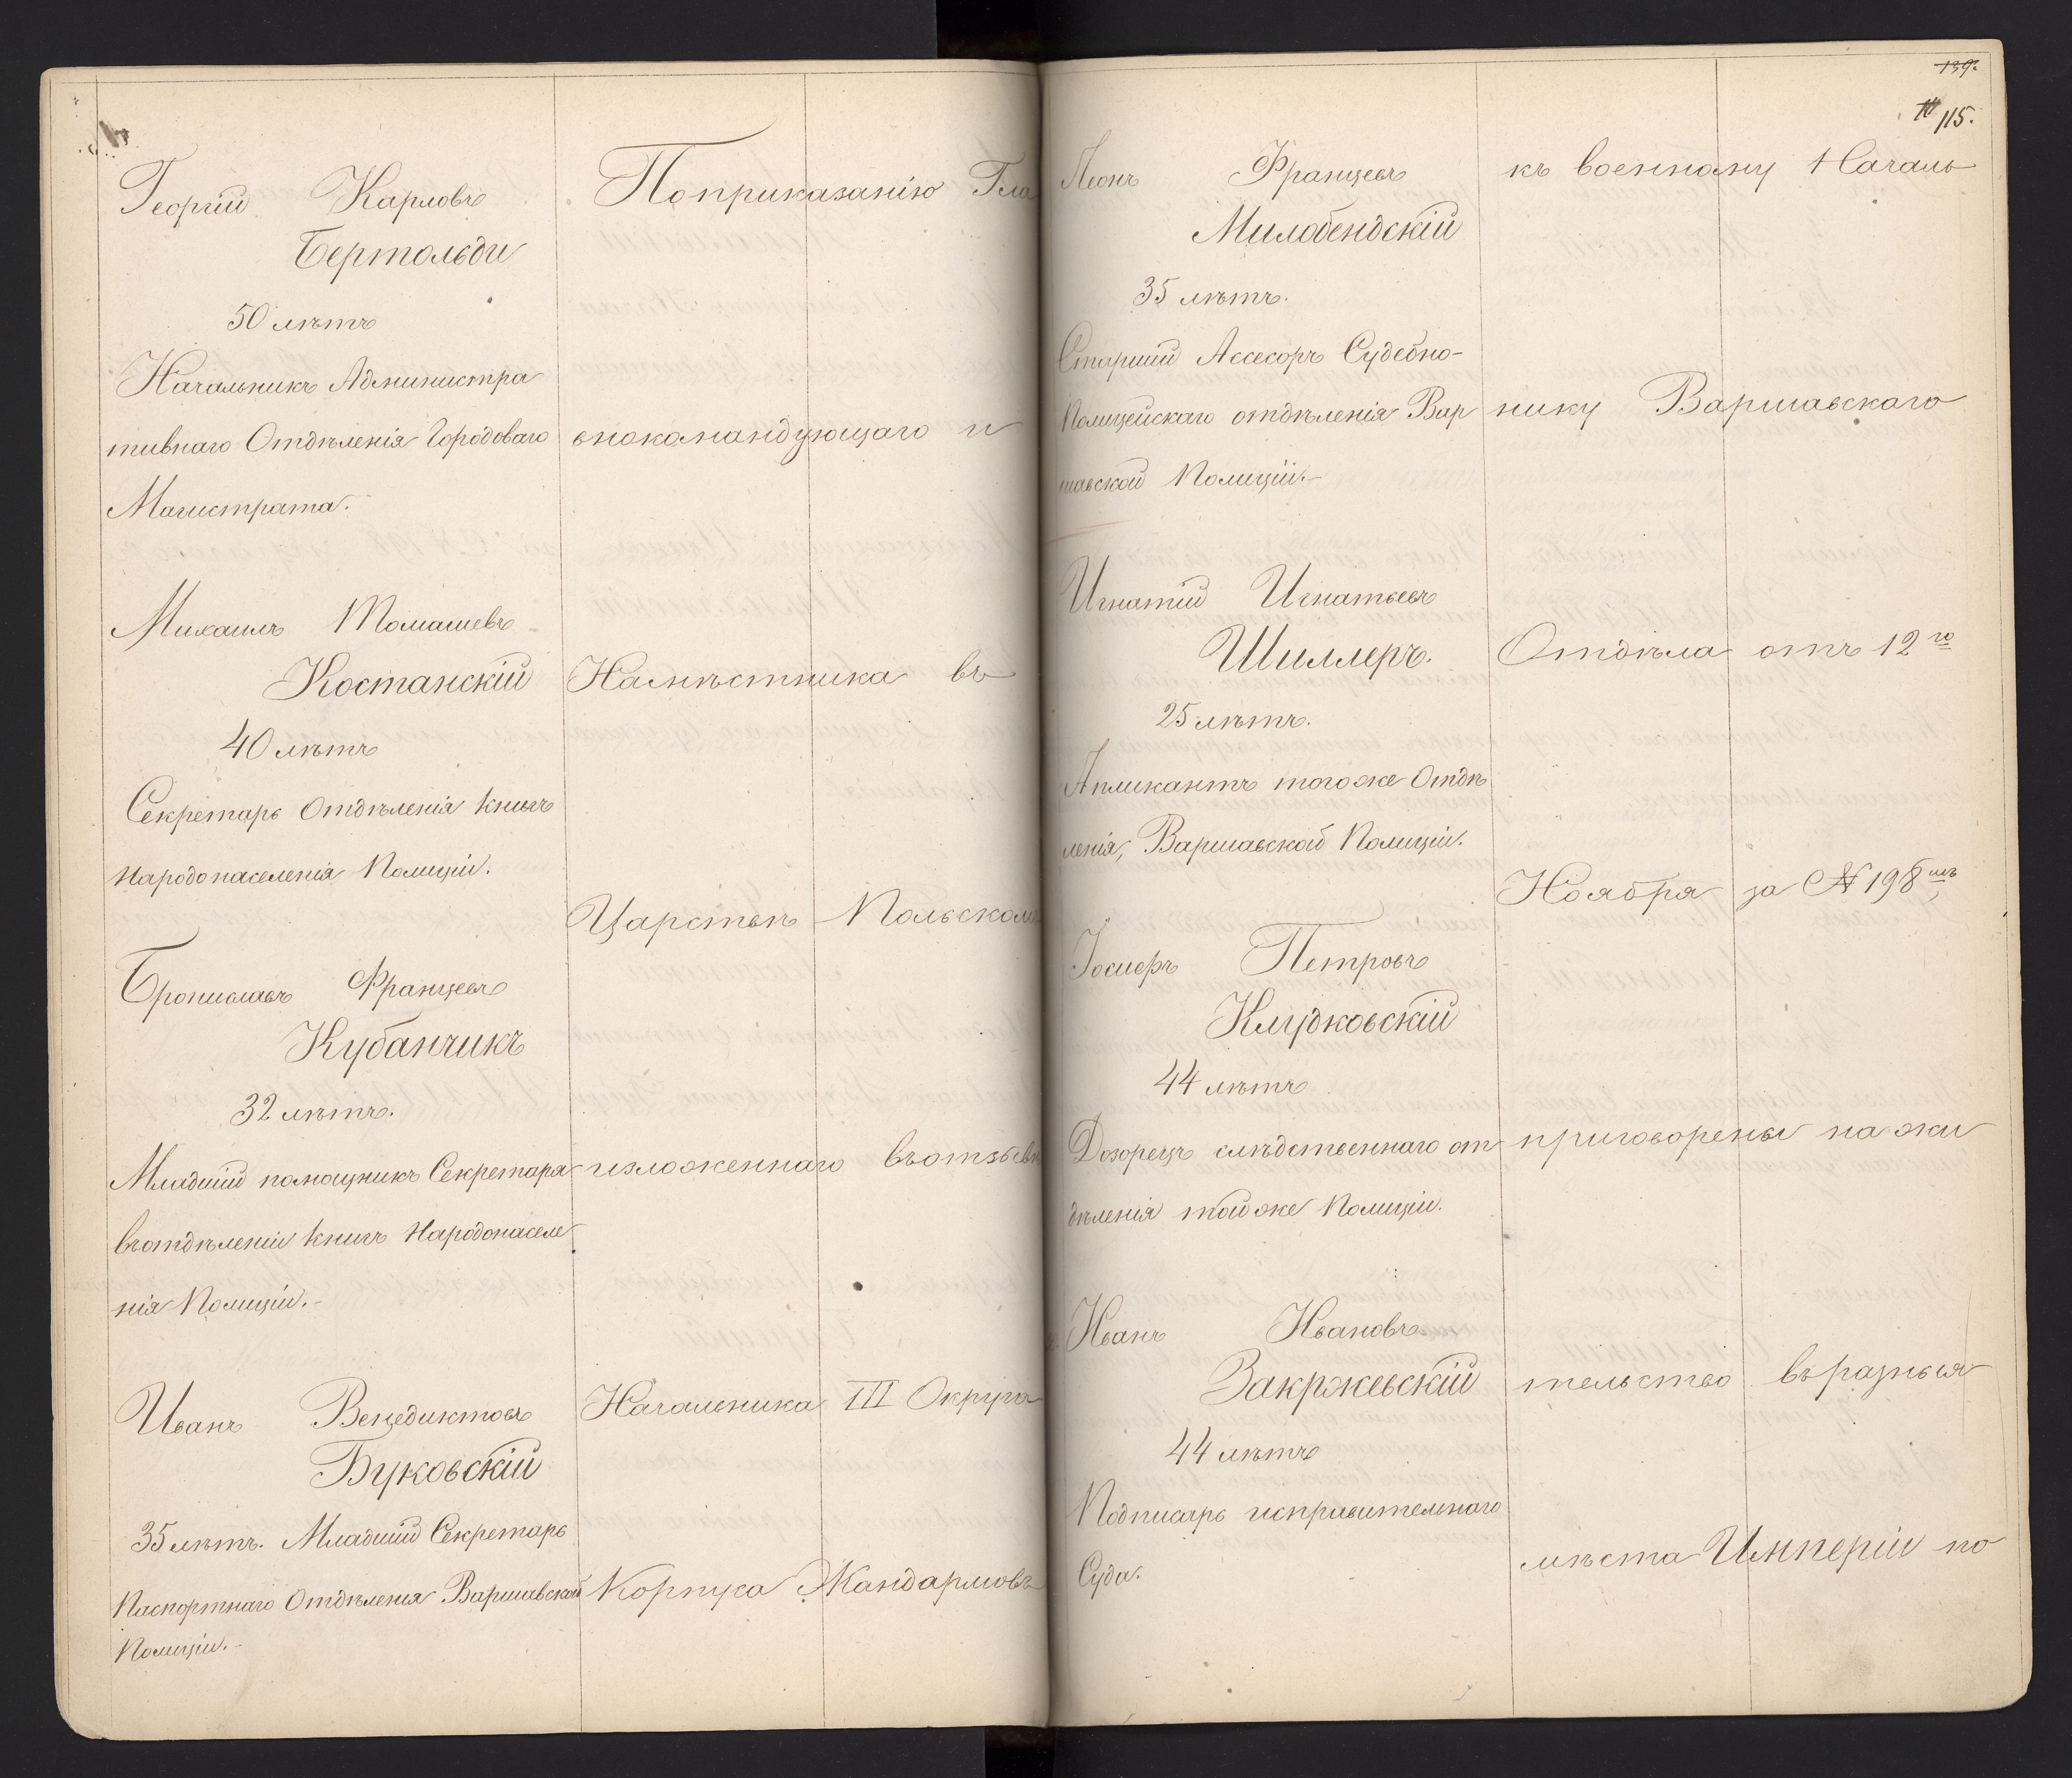 Георгій Карловъ
Бертольди
50 лѣтъ
Начальникъ Администра
тивнаго Отдѣленія Городоваго
Магистрата.
Михаилъ Томашевъ
Костанскій
40 лѣтъ
Секретарь Отдѣленія книгъ
Народонаселенія Полиціи.
Брониславъ Францевъ
Кубанчикъ
32 лѣтъ.
Младшій помощникъ Секретаря
въотдѣленіи книгъ Народонаселе
нія Полиціи.-
Иванъ Венедиктовъ
Буковскій
35 лѣтъ. Младшій Секретарь
Паспортнаго Отдѣленія Варшавской
Полиціи.-
Поприказанію Гла
внокомандующаго и
Намѣстника въ
Царствѣ Польскомъ
изложеннаго въотзывѣ
Начальника III Округа
Корпуса Жандармовъ
139.
115.
Леонъ Францевъ
Милобендскій
35 лѣтъ.
Старшій Ассесоръ Судебно-
Полицейскаго отдѣленія Вар
шавской Полиціи.-
Игнатій Игнатьевъ
Шиллеръ.
25 лѣтъ.
Апликантъ тогоже Отдѣ
ленія, Варшавской Полиціи.
Іосифъ Петровъ
Клудковскій
44 лѣтъ
Дозорецъ слѣдственнаго от
дѣленія тойже Полиціи.
Иванъ Ивановъ
Закржевскій
44 лѣтъ
Подписарь исправительнаго
Суда.
къ военному Началь
нику Варшавскаго
Отдѣла отъ 12го
Ноября за № 198мъ,
приговорены на жи
тельство въразныя
мѣста Имперіи по